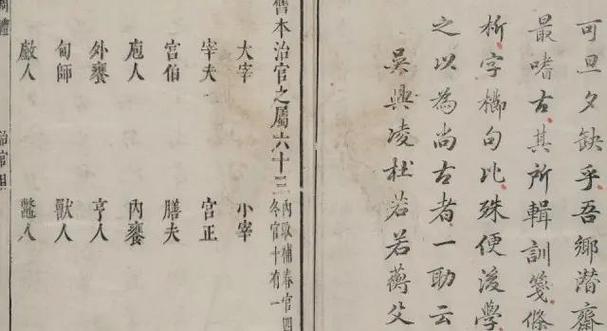 可旦夕缺乎吾鄉潛齋
最嗜古其所輯訓箋條
析字櫛句比殊便後學
之以為尚古者一助云
吳興凌杜若若蘅父
舊本治官之屬六十三
內取補春官四
冬官十有一
大宰 小宰
宰夫 宮正
宮伯 膳夫
庖人 內饔
外饔 亨人
甸師 獸人
人 鼈人